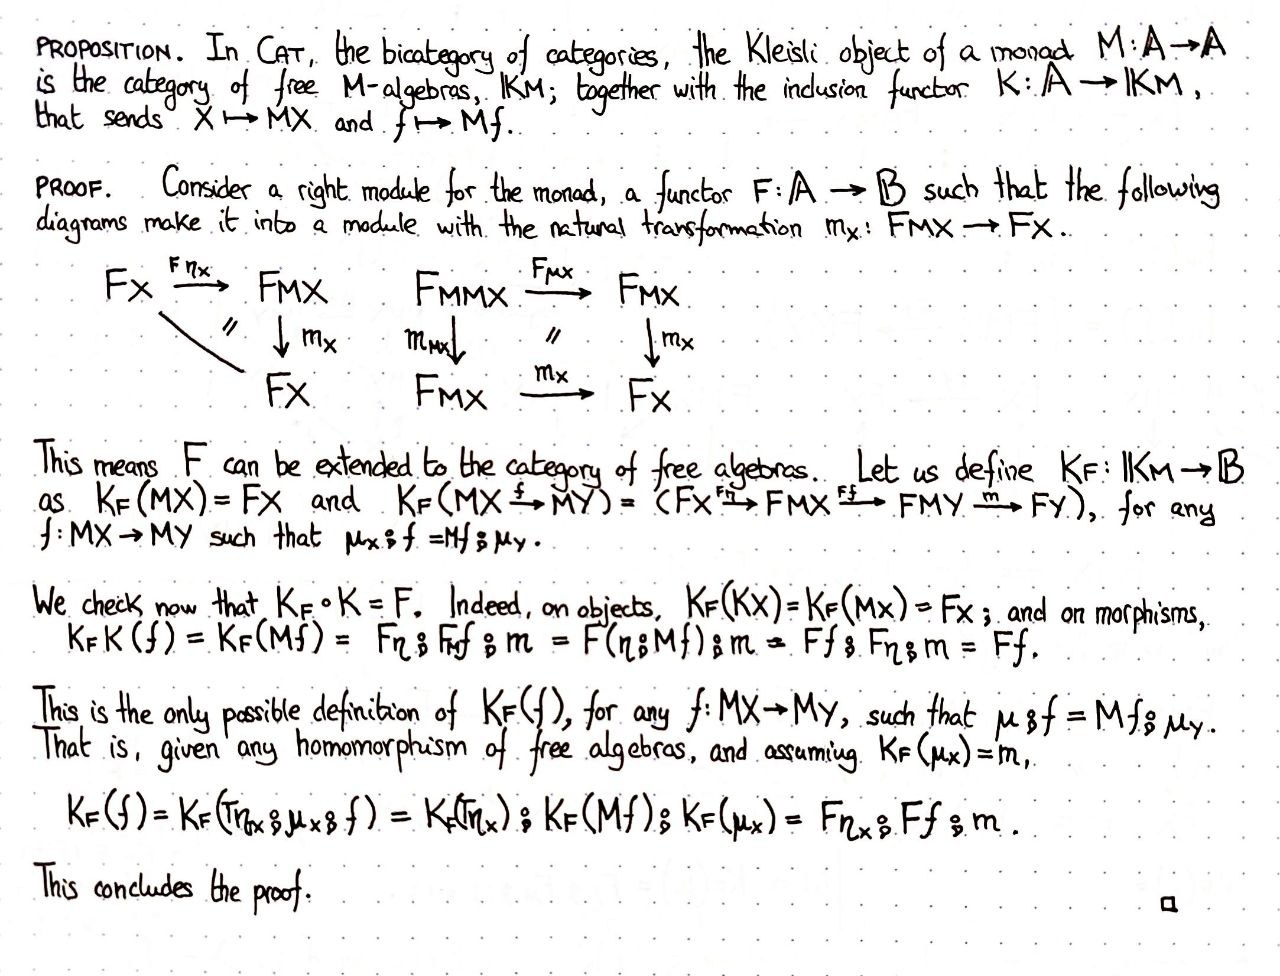 PROPOSITION. In CAT, the bicategory of categories, the Kleisli object of a monad M: 𝔸→𝔸
is the category of free M-algebras, 𝕂M; together with the inclusion functor K: 𝔸 → 𝕂M,
that sends X ↦ MX and f ↦ Mf.
PROOF. Consider a right module for the monad, a functor F: 𝔸 → 𝔹 such that the following
diagrams make it into a module with the natural transformation mₓ: FMX → FX.
FX Fηₓ→ FMX FMMX Fμₓ→ FMX
〃 ↓ mₓ m_MX ↓ 〃 ↓ mₓ
FX FMX mₓ→ FX
This means F can be extended to the category of free algebras. Let us define K_F: 𝕂M → 𝔹
as K_F(MX) = FX and K_F(MX f→ MY) = (FX Fη→ FMX Ff→ FMY m→ FY), for any
f: MX → MY such that μₓ⨟f = Mf⨟μ_Y.
We check now that K_F∘K = F. Indeed, on objects, K_F(KX) = K_F(MX) = FX; and on morphisms,
K_F K(f) = K_F(Mf) = Fη⨟FMf⨟m = F(η⨟Mf)⨟m = Ff⨟Fη⨟m = Ff.
This is the only possible definition of K_F(f), for any f: MX→MY, such that μ⨟f = Mf⨟μ_Y.
That is, given any homomorphism of free algebras, and assuming K_F(μₓ) = m,
K_F(f) = K_F(Tηₓ⨟μₓ⨟f) = K_F(Tηₓ)⨟K_F(Mf)⨟K_F(μₓ) = Fηₓ⨟Ff⨟m.
This concludes the proof. □